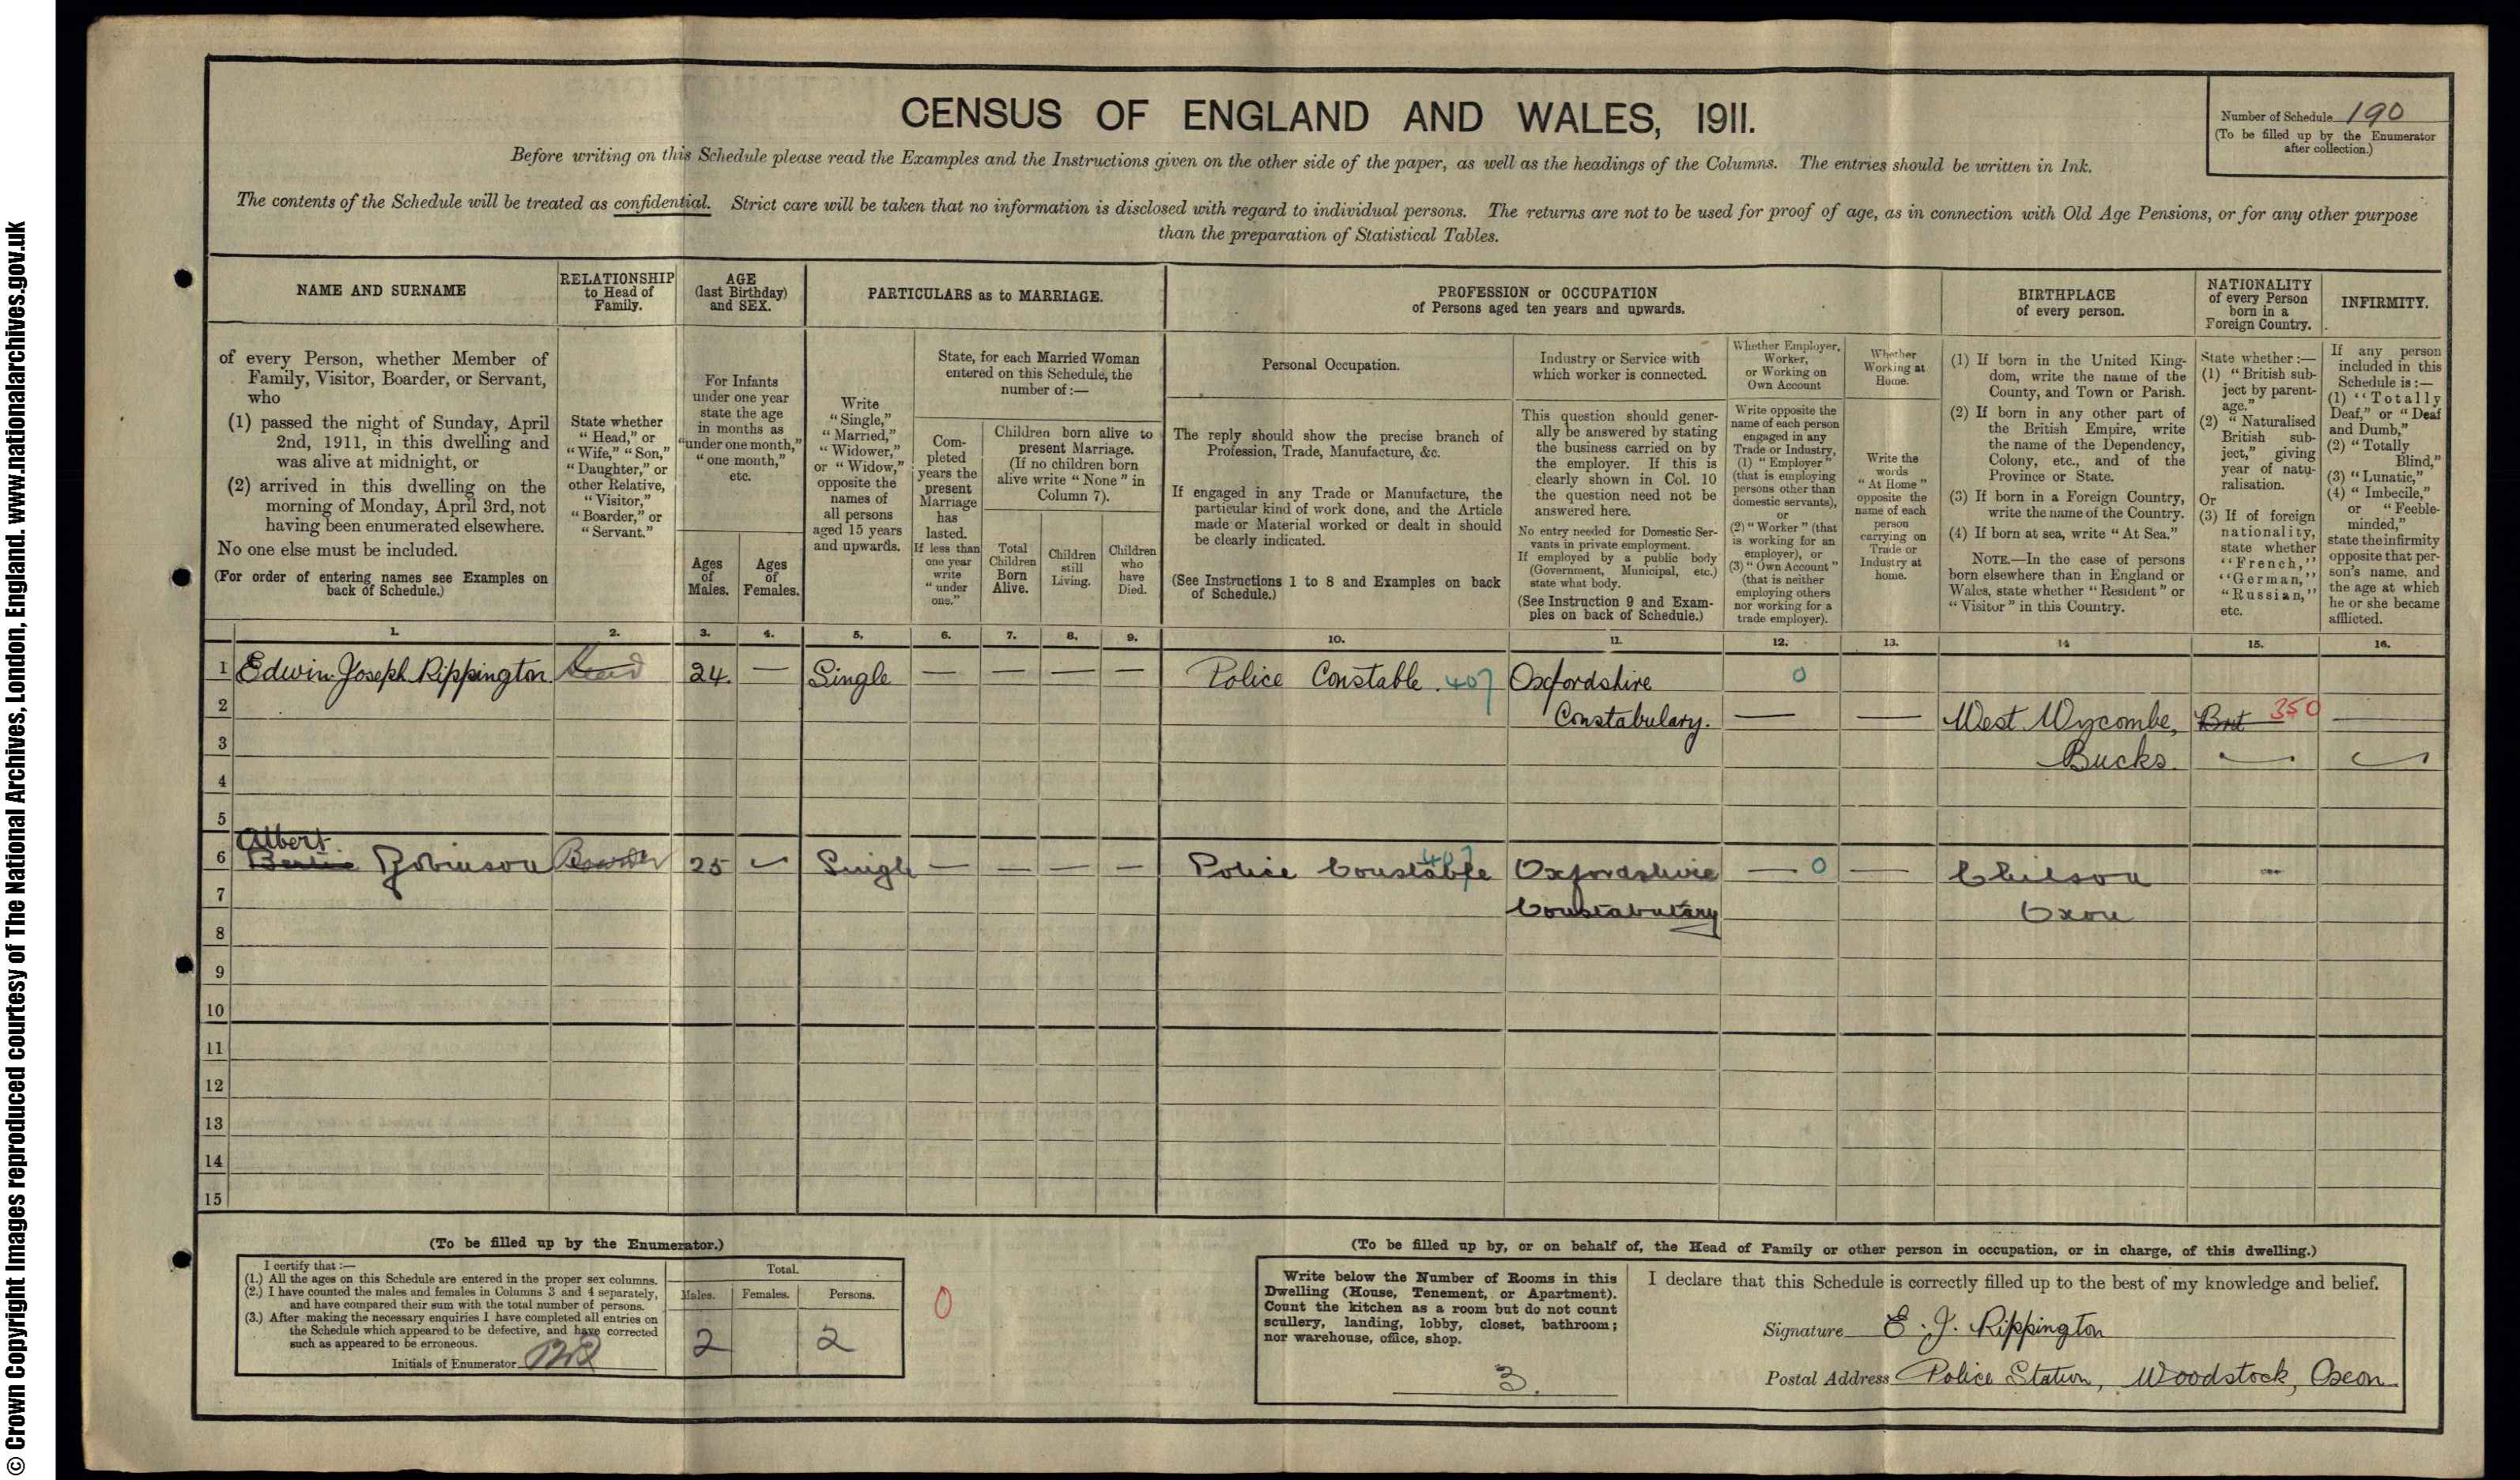 © Crown Copyright Images reproduced courtesy of The National Archives, London, England. www.nationalarchives.gov.uk
CENSUS OF ENGLAND AND WALES, 1911.
Number of Schedule 190
(To be filled up by the Enumerator
after collection.)
Before writing on this Schedule please read the Examples and the Instructions given on the other side of the paper, as well as the headings of the Columns. The entries should be written in Ink.
The contents of the Schedule will be treated as confidential. Strict care will be taken that no information is disclosed with regard to individual persons. The returns are not to be used for proof of age, as in connection with Old Age Pensions, or for any other purpose
than the preparation of Statistical Tables.
NAME AND SURNAME
of every Person, whether Member of
Family, Visitor, Boarder, or Servant,
who
(1) passed the night of Sunday, April
2nd, 1911, in this dwelling and
was alive at midnight, or
(2) arrived in this dwelling on the
morning of Monday, April 3rd, not
having been enumerated elsewhere.
No one else must be included.
(For order of entering names see Examples on
back of Schedule.)
RELATIONSHIP
to Head of
Family.
State whether
"Head," or
"Wife," "Son,"
"Daughter," or
other Relative,
"Visitor,"
"Boarder," or
"Servant."
AGE
(last Birthday)
and SEX.
For Infants
under one year
state the age
in months as
"under one month,"
"one month,"
etc.
Ages
of
Males.
Ages
of
Females.
PARTICULARS as to MARRIAGE.
Write
"Single,"
"Married,"
"Widower,"
or "Widow,"
opposite the
names of
all persons
aged 15 years
and upwards.
State, for each Married Woman
entered on this Schedule, the
number of:—
Com-
pleted
years the
present
Marriage
has
lasted.
If less than
one year
write
"under
one."
Children born alive to
present Marriage.
(If no children born
alive write "None" in
Column 7).
Total
Children
Born
Alive.
Children
still
Living.
Children
who
have
Died.
PROFESSION or OCCUPATION
of Persons aged ten years and upwards.
Personal Occupation.
The reply should show the precise branch of
Profession, Trade, Manufacture, &c.
If engaged in any Trade or Manufacture, the
particular kind of work done, and the Article
made or Material worked or dealt in should
be clearly indicated.
(See Instructions 1 to 8 and Examples on back
of Schedule.)
Industry or Service with
which worker is connected.
This question should gener-
ally be answered by stating
the business carried on by
the employer. If this is
clearly shown in Col. 10
the question need not be
answered here.
No entry needed for Domestic Ser-
vants in private employment.
If employed by a public body
(Government, Municipal, etc.)
state what body.
(See Instruction 9 and Exam-
ples on back of Schedule.)
Whether Employer,
Worker,
or Working on
Own Account
Write opposite the
name of each person
engaged in any
Trade or Industry,
(1) "Employer"
(that is employing
persons other than
domestic servants),
or
(2) "Worker" (that
is working for an
employer), or
(3) "Own Account"
(that is neither
employing others
nor working for a
trade employer).
Whether
Working at
Home.
Write the
words
"At Home"
opposite the
name of each
person
carrying on
Trade or
Industry at
home.
BIRTHPLACE
of every person.
(1) If born in the United King-
dom, write the name of the
County, and Town or Parish.
(2) If born in any other part of
the British Empire, write
the name of the Dependency,
Colony, etc., and of the
Province or State.
(3) If born in a Foreign Country,
write the name of the Country.
(4) If born at sea, write "At Sea."
NOTE.—In the case of persons
born elsewhere than in England or
Wales, state whether "Resident" or
"Visitor" in this Country.
NATIONALITY
of every Person
born in a
Foreign Country.
State whether :—
(1) "British sub-
ject by parent-
age."
(2) "Naturalised
British sub-
ject," giving
year of natu-
ralisation.
Or
(3) If of foreign
nationality,
state whether
"French,"
"German,"
"Russian,"
etc.
INFIRMITY.
If any person
included in this
Schedule is:—
(1) "Totally
Deaf," or "Deaf
and Dumb,"
(2) "Totally
Blind,"
(3) "Lunatic,"
(4) "Imbecile,"
or "Feeble-
minded,"
state the infirmity
opposite that per-
son's name, and
the age at which
he or she became
afflicted.
1. 2. 3. 4. 5. 6. 7. 8. 9. 10. 11. 12. 13. 14 15. 16.
1 Edwin Joseph Rippington Head 24. — Single — — — — Police Constable. 407 Oxfordshire 0
2 Constabulary. — — West Wycombe, Brit 350 —
3 Bucks.
4
5
Albert
6 Robinson Boarder 25 Single — — — — Police Constable 407 Oxfordshire — 0 — Chilson —
7 Constabulary Oxon
8
9
10
11
12
13
14
15
(To be filled up by the Enumerator.)
I certify that :—
(1.) All the ages on this Schedule are entered in the proper sex columns.
(2.) I have counted the males and females in Columns 3 and 4 separately,
and have compared their sum with the total number of persons.
(3.) After making the necessary enquiries I have completed all entries on
the Schedule which appeared to be defective, and have corrected
such as appeared to be erroneous.
Initials of Enumerator
Total.
Males. Females. Persons.
2 2
0
(To be filled up by, or on behalf of, the Head of Family or other person in occupation, or in charge, of this dwelling.)
Write below the Number of Rooms in this
Dwelling (House, Tenement, or Apartment).
Count the kitchen as a room but do not count
scullery, landing, lobby, closet, bathroom;
nor warehouse, office, shop.
3.
I declare that this Schedule is correctly filled up to the best of my knowledge and belief.
Signature E. J. Rippington
Postal Address Police Station, Woodstock, Oxon